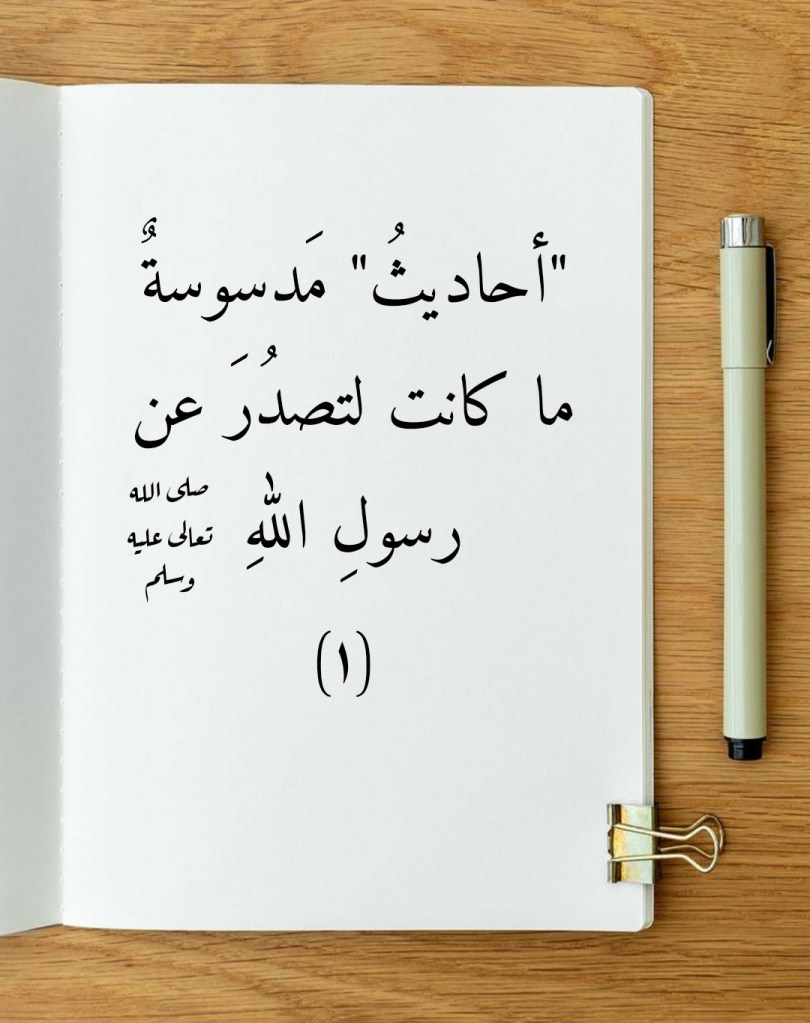 "أحاديثُ" مَدسوسةٌ
ما كانت لتصدُرَ عن
رسولِ اللهِ صلى الله تعالى عليه وسلم
(١)